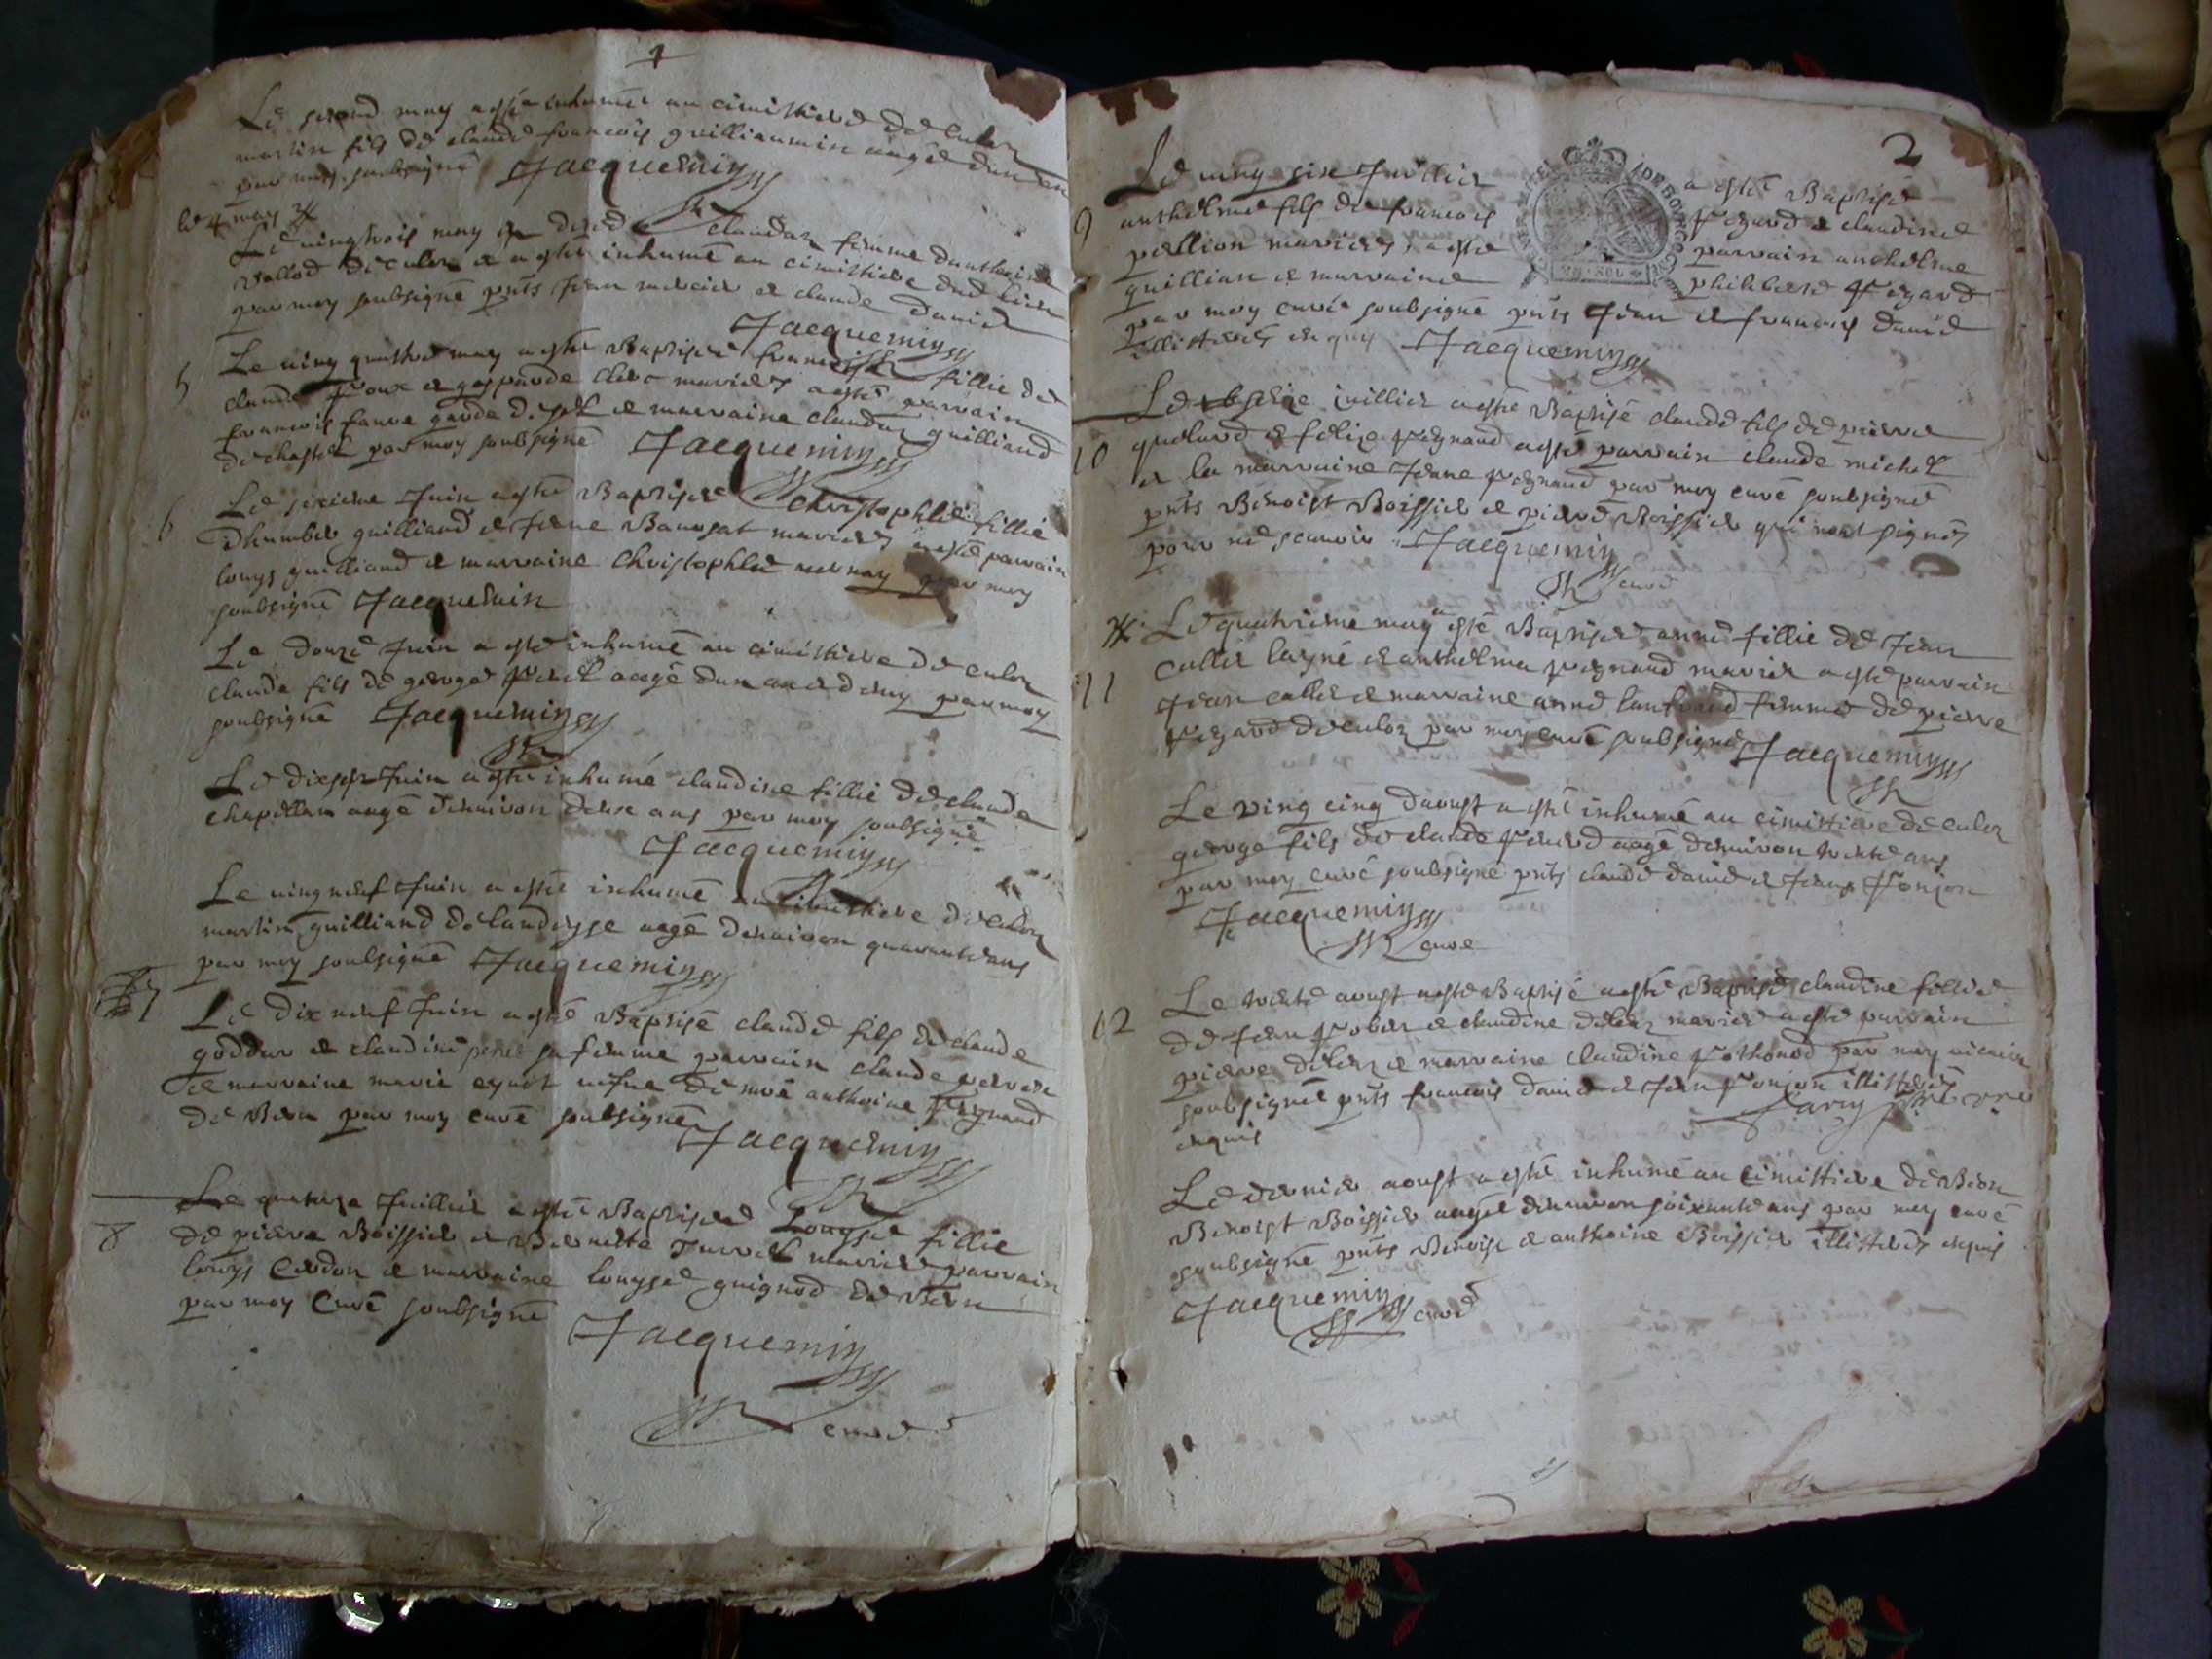 1
Le second may a esté inhumé au cimistiere de Culoz
martin fils de claude francois guilliaumin aagé dun an
par moy soubsigné Jacquemin
le 4 may
Le vingtrois may est decede claudaz femme danthoine
vallod de culoz et a esté inhumé au cimistiere dud lieu
par moy soubsigné pnts Jean mercier et claude david
Jacquemin
5
Le ving quatre may a esté Baptisee francoise fillie de
claude Foux et gasparde clerc mariez a esté parrain
francois faure garde de sel et marraine claudaz guilliand
de chastel par moy soubsigné Jacquemin
6
Le sixieme Juin a esté Baptisee Christophle fillie
dhumber guilliand et Jeane Banosat mariez a esté parrain
louys guilliand et marraine Christophle mernay par moy
soubsigné Jacquemin
Le douze Juin a esté inhumé au cimistiere de culoz
claude fils de george aagé dun an et demy par moy
soubsigné Jacquemin
Le dixsept Juin a esté inhumé claudine fillie de claude
chapellan aagé denviron deux ans par moy soubsigné
Jacquemin
Le ving neuf Juin a esté inhumé au cimistiere de culoz
martin guilliand de landeysse aagé denviron quarante ans
par moy soubsigné Jacquemin
7
Le dix neuf Juin a esté Baptisé claude fils de claude
goddar et claudine sa femme parrain claude
et marraine marie de mre anthoine
de Beon par moy curé soubsigné
Jacquemin
8
Le quatorze Juillier a esté Baptisee Louyse fillie
de pierre Boissier et Bernarde mariez parrain
louys Cerdon et marraine louyse guignod de Beon
par moy Curé soubsigné
Jacquemin
curé
2
9
Le ving six Juillier a esté Baptisé
anthelme fils de francois Pegard et claudine
pellion mariez, a esté parrain anthelme
guillian et marraine philiberte Pegard
par moy curé soubsigné pnts Jean et francois david
illitterés enquis Jacquemin
10
Le seize juillier a esté Baptisé claude fils de pierre
et felize Pegnaud a esté parrain claude michel
et la marraine Jeane Pegnaud par moy curé soubsigné
pnts Benoist Boissier et pierre Boissier qui nont signés
pour ne scavoir Jacquemin
curé
11
Le quatrieme may a esté Baptisee anne fillie de Jean
callier layné et anthelma Pegnaud mariez a esté parrain
Jean callier et marraine anne femme de pierre
Pegard de culoz par moy curé soubsigné Jacquemin
Le ving cinq daoust a esté inhumé au cimistiere de culoz
george fils de claude aagé denviron trente ans
par moy curé soubsigné pnts claude david et Jean Ponjon
Jacquemin
curé
12
Le trente aoust a esté Baptisé a esté Baptisé claudine fillie
de Jean et claudine mariez a esté parrain
pierre et marraine claudine Pothonod par moy vicaire
soubsigné pnts francois david et Jean Ponjon illitterés
enquis
Le dernier aoust a esté inhumé au cimistiere de Beon
Benoist Boissier aagé denviron soixante ans par moy curé
soubsigné pnts Benoist et anthoine Boissier illitterés enquis
Jacquemin
curé